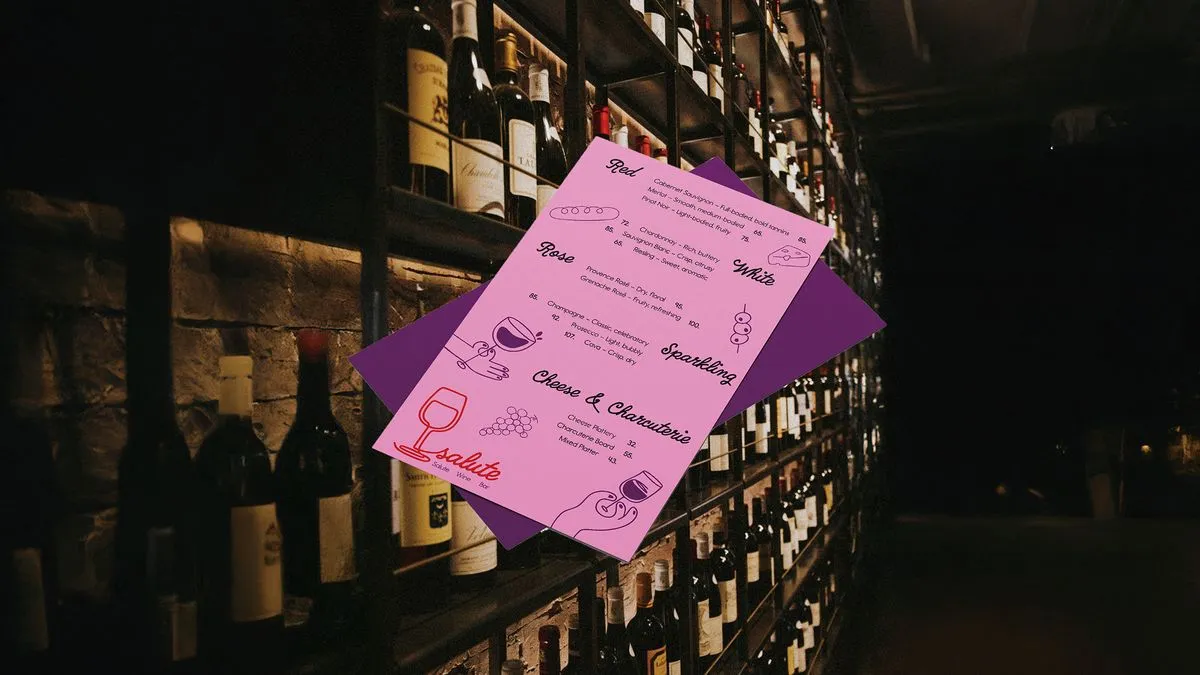 Red
Cabernet Sauvignon – Full-bodied, bold tannins 85.
Merlot – Smooth, medium bodied 65.
Pinot Noir – Light-bodied, fruity 75.
72. Chardonnay – Rich, buttery
85. Sauvignon Blanc – Crisp, citrusy
65. Riesling – Sweet, aromatic
White
Rose
Provence Rosé – Dry, floral 95.
Grenache Rosé – Fruity, refreshing 100.
85. Champagne – Classic, celebratory
92. Prosecco – Light, bubbly
107. Cava – Crisp, dry
Sparkling
Cheese & Charcuterie
Cheeze Plattery 32.
Charcuterie Board 55.
Mixed Platter 43.
salute
Salute Wine Bar